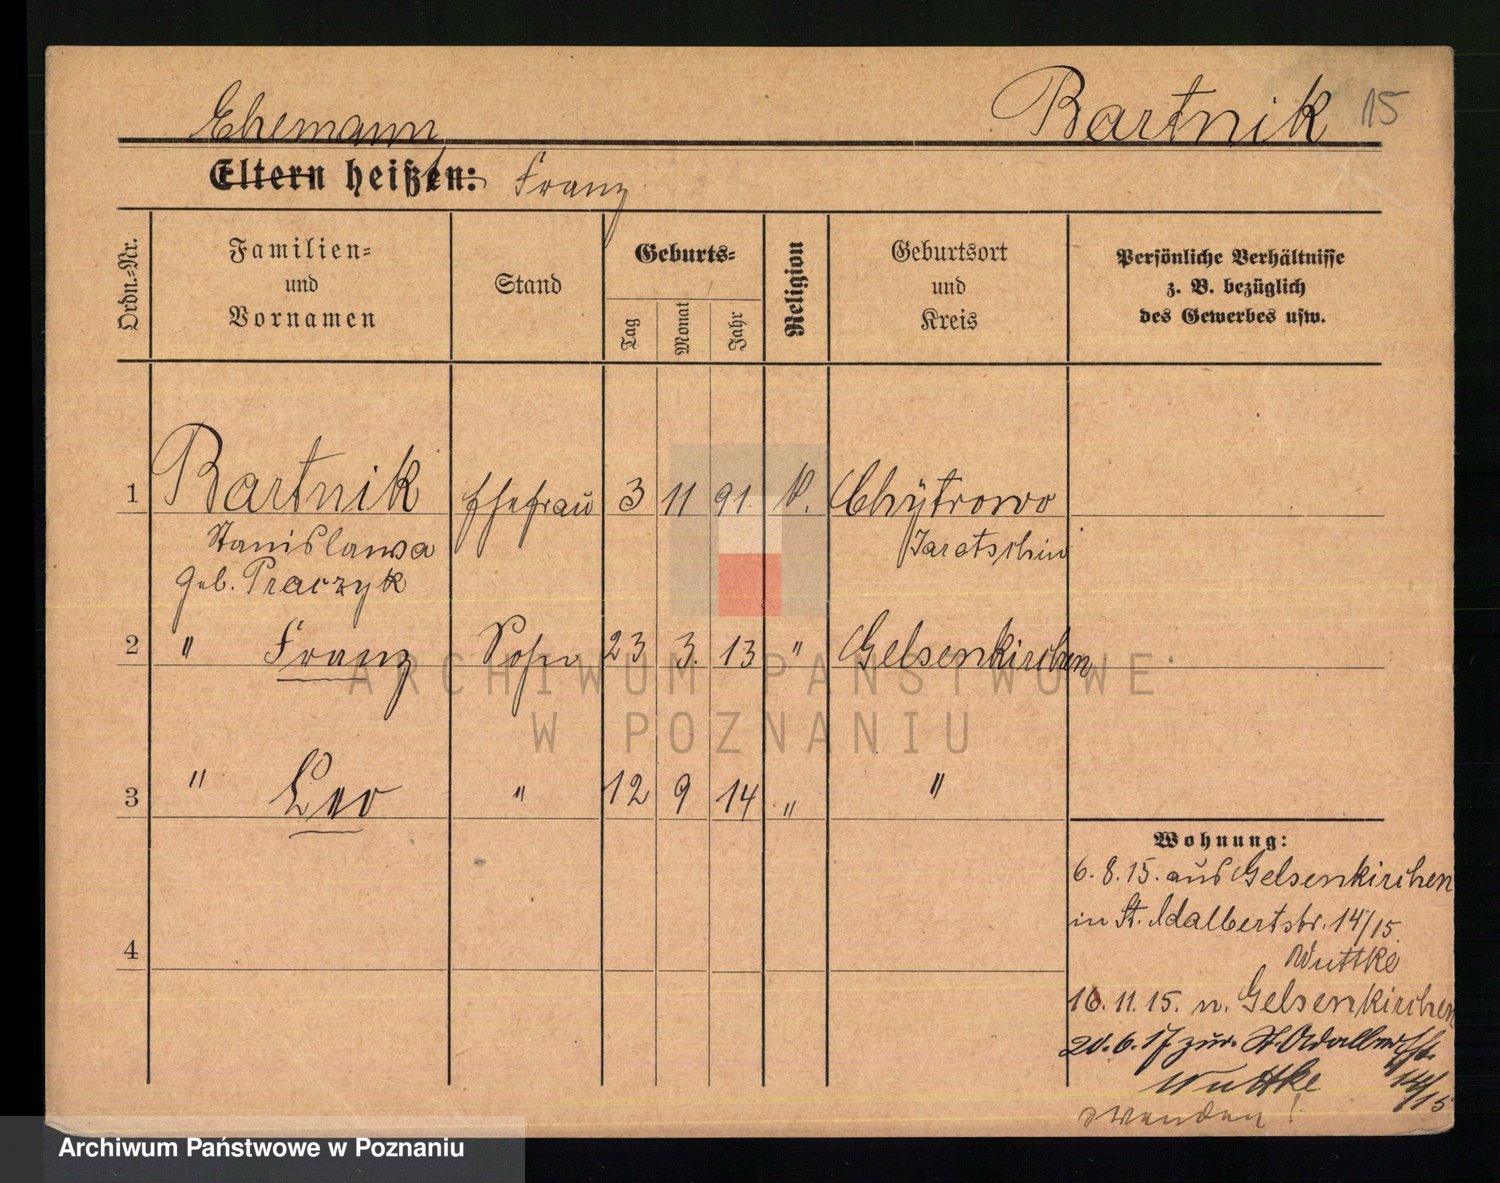 Ehemann Bartnik 15
Eltern heißen: Franz
Ordn.-Nr.
Familien- und Vornamen
Stand
Geburts-
Tag Monat Jahr
Religion
Geburtsort und Kreis
Persönliche Verhältnisse
z. B. bezüglich
des Gewerbes usw.
1 Bartnik Ehefrau 3 11 91. k. Chÿtrowo
Stanislawa Jarotschin
geb. Praczyk
2 " Franz Sohn 23 3. 13 " Gelsenkirchen
3 " Leo " 12 9 14 " "
4
Wohnung:
6. 8. 15. aus Gelsenkirchen
in St. Adalbertstr. 14/15.
Wuttke
16. 11. 15. n. Gelsenkirchen
20. 6. 17 zur. St. Adalbertst.
Wuttke 14/15
wenden!
ARCHIWUM PAŃSTWOWE
W POZNANIU
Archiwum Państwowe w Poznaniu